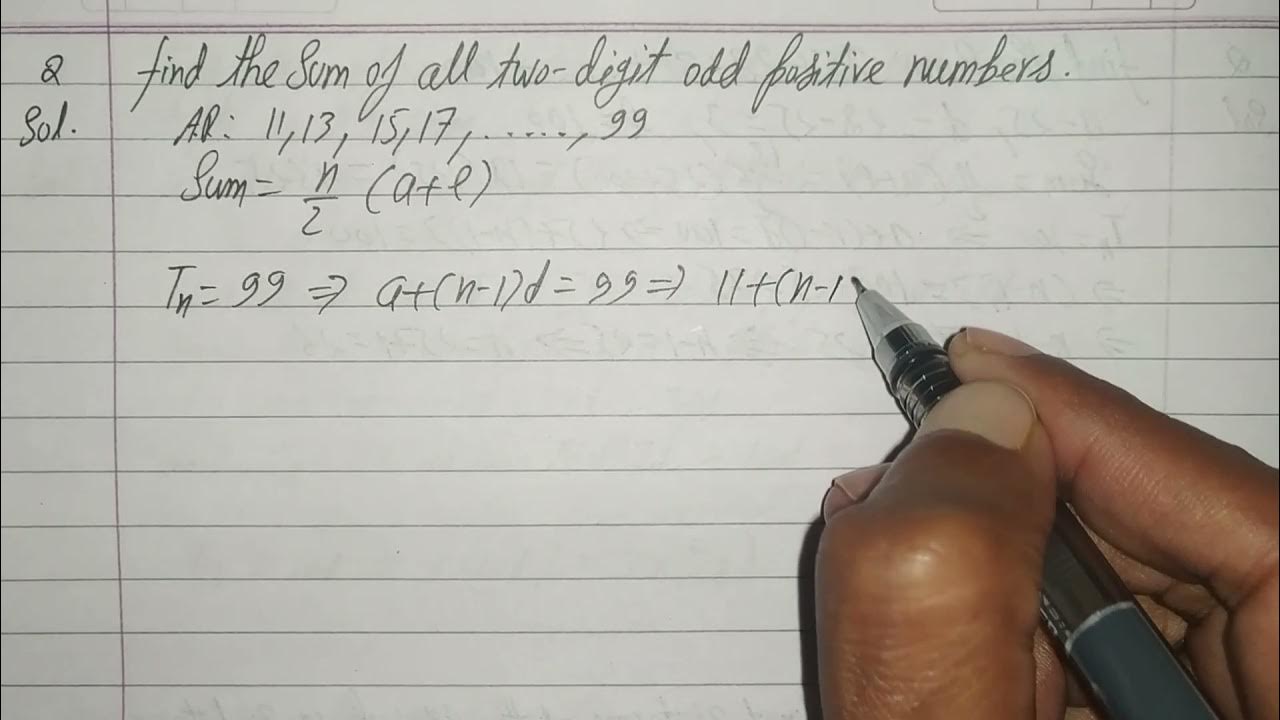 Q find the Sum of all two-digit odd positive numbers.
Sol. AP: 11, 13, 15, 17, ....., 99
Sum = n/2 (a+l)
Tn = 99 ⇒ a+(n-1)d = 99 ⇒ 11+(n-1